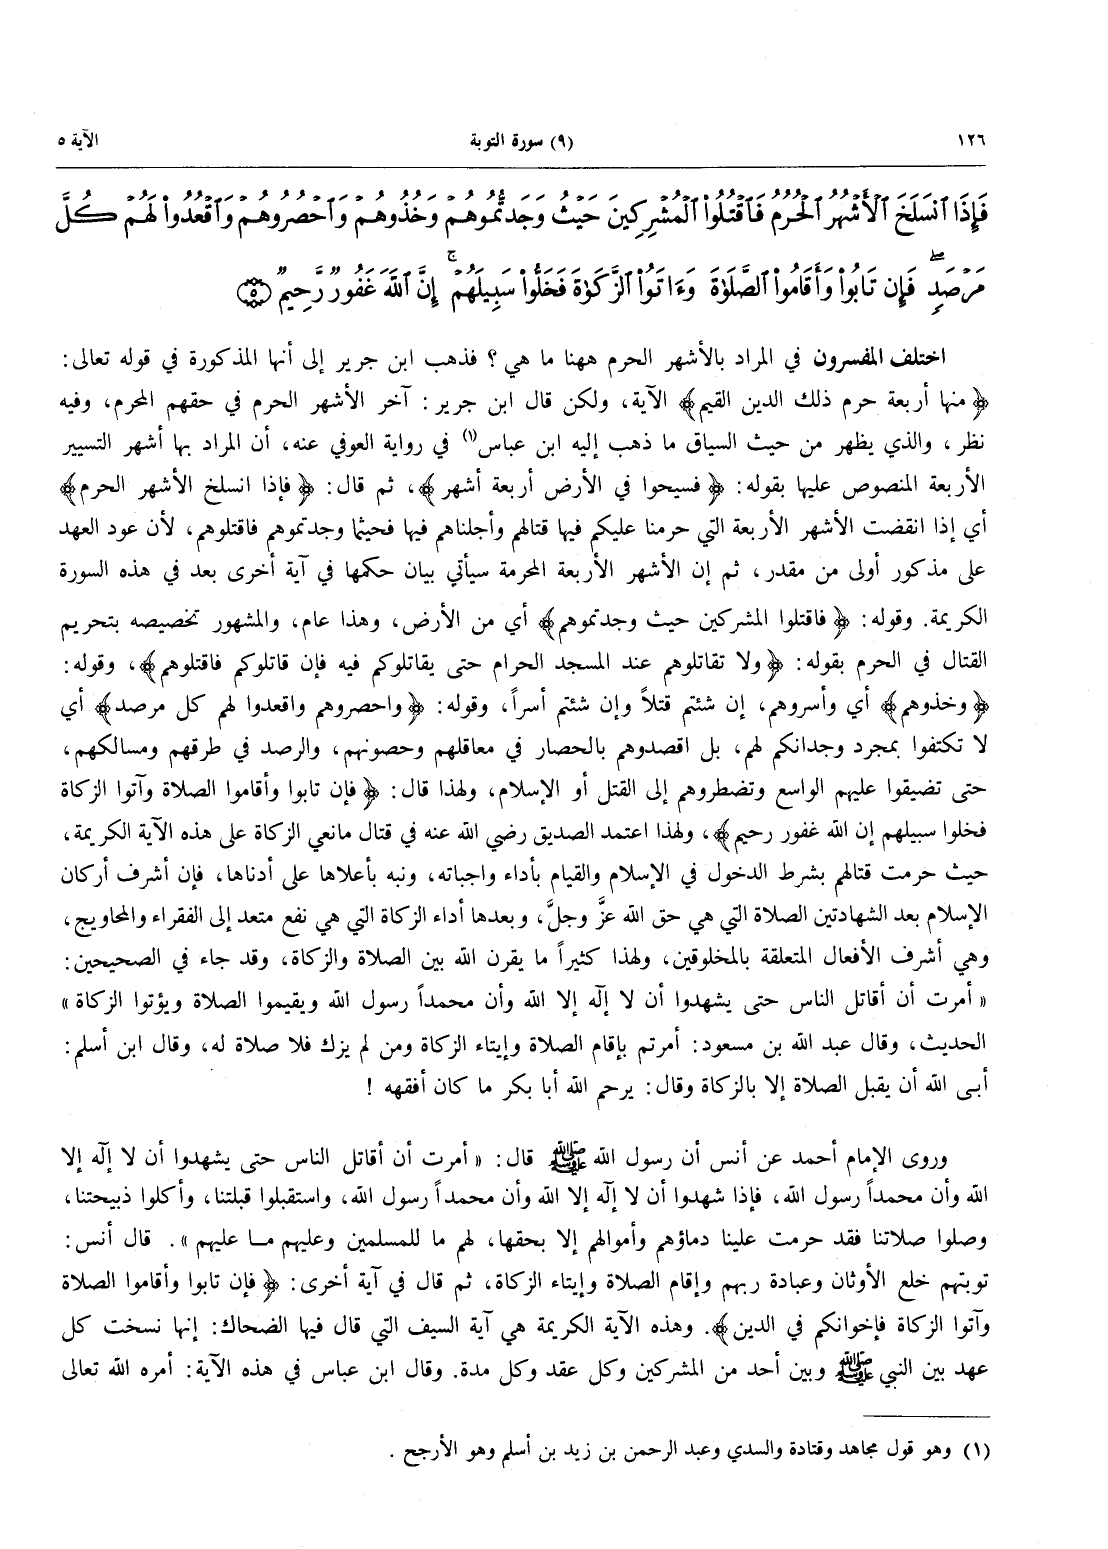 ١٢٦ (٩) سورة التوبة الآية ٥
فَإِذَا ٱنسَلَخَ ٱلْأَشْهُرُ ٱلْحُرُمُ فَٱقْتُلُوا۟ ٱلْمُشْرِكِينَ حَيْثُ وَجَدتُّمُوهُمْ وَخُذُوهُمْ وَٱحْصُرُوهُمْ وَٱقْعُدُوا۟ لَهُمْ كُلَّ
مَرْصَدٍۢ ۚ فَإِن تَابُوا۟ وَأَقَامُوا۟ ٱلصَّلَوٰةَ وَءَاتَوُا۟ ٱلزَّكَوٰةَ فَخَلُّوا۟ سَبِيلَهُمْ ۚ إِنَّ ٱللَّهَ غَفُورٌ رَّحِيمٌ ﴿٥﴾
اختلف المفسرون في المراد بالأشهر الحرم ههنا ما هي ؟ فذهب ابن جرير إلى أنها المذكورة في قوله تعالى :
﴿منها أربعة حرم ذلك الدين القيم﴾ الآية، ولكن قال ابن جرير : آخر الأشهر الحرم في حقهم المحرم، وفيه
نظر، والذي يظهر من حيث السياق ما ذهب إليه ابن عباس(١) في رواية العوفي عنه، أن المراد بها أشهر التسيير
الأربعة المنصوص عليها بقوله : ﴿فسيحوا في الأرض أربعة أشهر﴾، ثم قال : ﴿فإذا انسلخ الأشهر الحرم﴾
أي إذا انقضت الأشهر الأربعة التي حرمنا عليكم فيها قتالهم وأجلناهم فيها فحيثما وجدتموهم فاقتلوهم، لأن عود العهد
على مذكور أولى من مقدر، ثم إن الأشهر الأربعة المحرمة سيأتي بيان حكمها في آية أخرى بعد في هذه السورة
الكريمة. وقوله : ﴿فاقتلوا المشركين حيث وجدتموهم﴾ أي من الأرض، وهذا عام، والمشهور تخصيصه بتحريم
القتال في الحرم بقوله : ﴿ولا تقاتلوهم عند المسجد الحرام حتى يقاتلوكم فيه فإن قاتلوكم فاقتلوهم﴾، وقوله :
﴿وخذوهم﴾ أي وأسروهم، إن شئتم قتلاً وإن شئتم أسراً، وقوله : ﴿واحصروهم واقعدوا لهم كل مرصد﴾ أي
لا تكتفوا بمجرد وجدانكم لهم، بل اقصدوهم بالحصار في معاقلهم وحصونهم، والرصد في طرقهم ومسالكهم،
حتى تضيقوا عليهم الواسع وتضطروهم إلى القتل أو الإسلام، ولهذا قال : ﴿فإن تابوا وأقاموا الصلاة وآتوا الزكاة
فخلوا سبيلهم إن الله غفور رحيم﴾، ولهذا اعتمد الصديق رضي الله عنه في قتال مانعي الزكاة على هذه الآية الكريمة،
حيث حرمت قتالهم بشرط الدخول في الإسلام والقيام بأداء واجباته، ونبه بأعلاها على أدناها، فإن أشرف أركان
الإسلام بعد الشهادتين الصلاة التي هي حق الله عزَّ وجلَّ، وبعدها أداء الزكاة التي هي نفع متعد إلى الفقراء والمحاويج،
وهي أشرف الأفعال المتعلقة بالمخلوقين، ولهذا كثيراً ما يقرن الله بين الصلاة والزكاة، وقد جاء في الصحيحين :
« أمرت أن أقاتل الناس حتى يشهدوا أن لا إلٓه إلا الله وأن محمداً رسول الله ويقيموا الصلاة ويؤتوا الزكاة »
الحديث، وقال عبد الله بن مسعود : أمرتم بإقام الصلاة وإيتاء الزكاة ومن لم يزك فلا صلاة له، وقال ابن أسلم :
أبـى الله أن يقبل الصلاة إلا بالزكاة وقال : يرحم الله أبا بكر ما كان أفقهه !
وروى الإمام أحمد عن أنس أن رسول الله ﷺ قال : « أمرت أن أقاتل الناس حتى يشهدوا أن لا إلٓه إلا
الله وأن محمداً رسول الله، فإذا شهدوا أن لا إلٓه إلا الله وأن محمداً رسول الله، واستقبلوا قبلتنا، وأكلوا ذبيحتنا،
وصلوا صلاتنا فقد حرمت علينا دماؤهم وأموالهم إلا بحقها، لهم ما للمسلمين وعليهم مـا عليهم ». قال أنس :
توبتهم خلع الأوثان وعبادة ربهم وإقام الصلاة وإيتاء الزكاة، ثم قال في آية أخرى : ﴿فإن تابوا وأقاموا الصلاة
وآتوا الزكاة فإخوانكم في الدين﴾. وهذه الآية الكريمة هي آية السيف التي قال فيها الضحاك : إنها نسخت كل
عهد بين النبي ﷺ وبين أحد من المشركين وكل عقد وكل مدة. وقال ابن عباس في هذه الآية : أمره الله تعالى
(١) وهو قول مجاهد وقتادة والسدي وعبد الرحمن بن زيد بن أسلم وهو الأرجح .